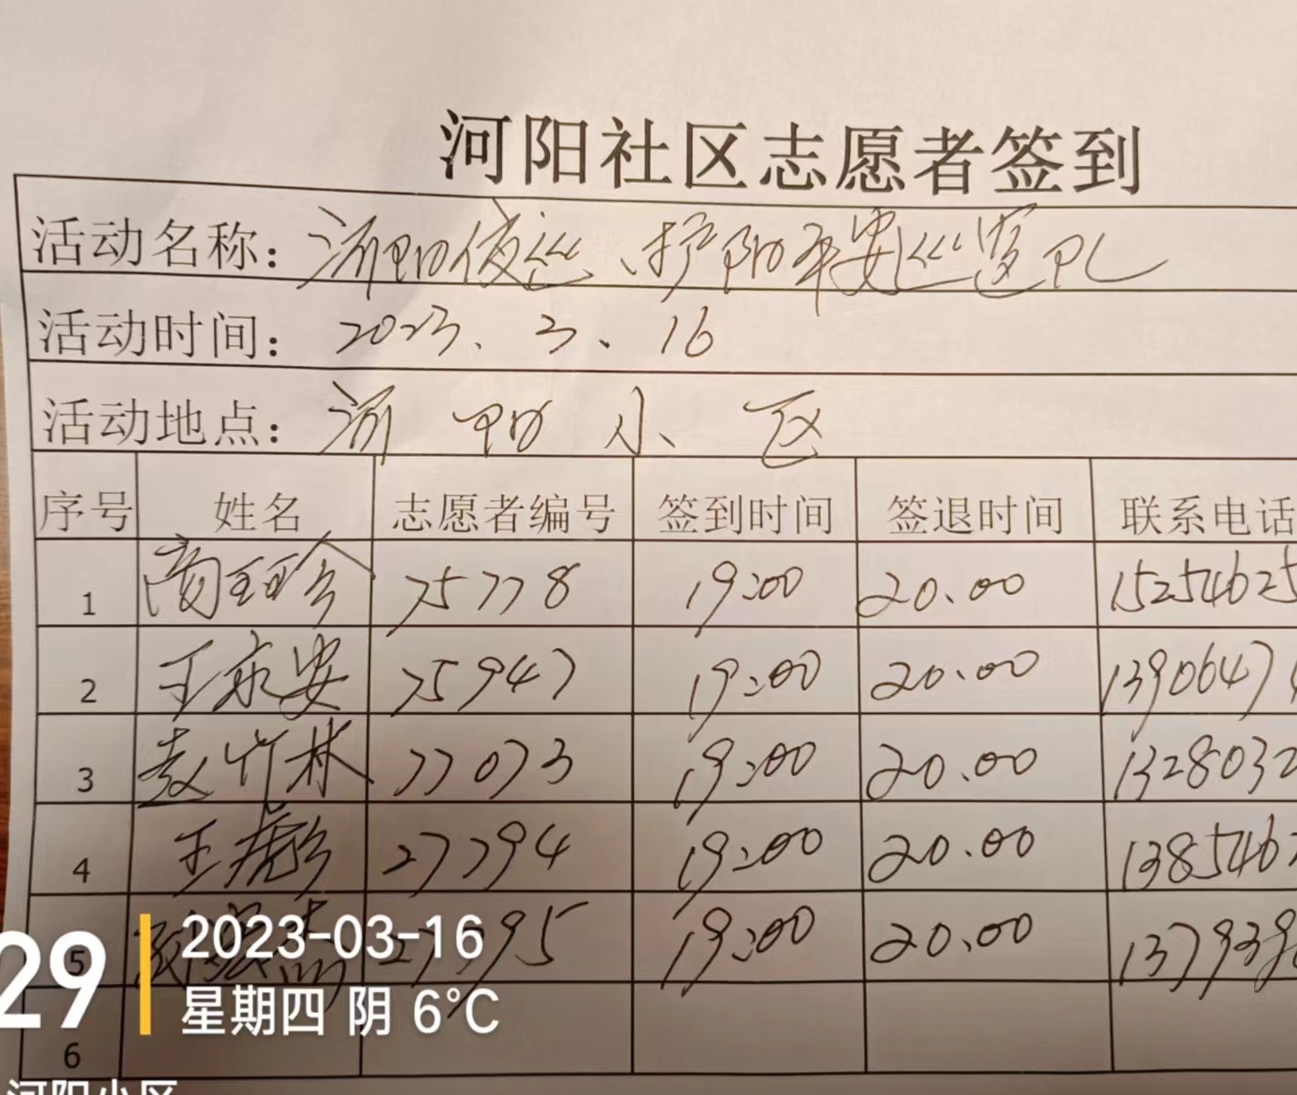 河阳社区志愿者签到
活动名称：河阳夜巡、护阳平安巡逻队
活动时间：2023.3.16
活动地点：河阳小区
序号 姓名 志愿者编号 签到时间 签退时间 联系电话
1 商玉珍 75778 19:00 20.00 15254625
2 王永安 75947 19:00 20.00 1390647
3 赵竹林 77073 19:00 20.00 1328032
4 王彪 27794 19:00 20.00 1385462
5 19:00 20.00 137939
6
29 2023-03-16
星期四 阴 6°C
河阳小区